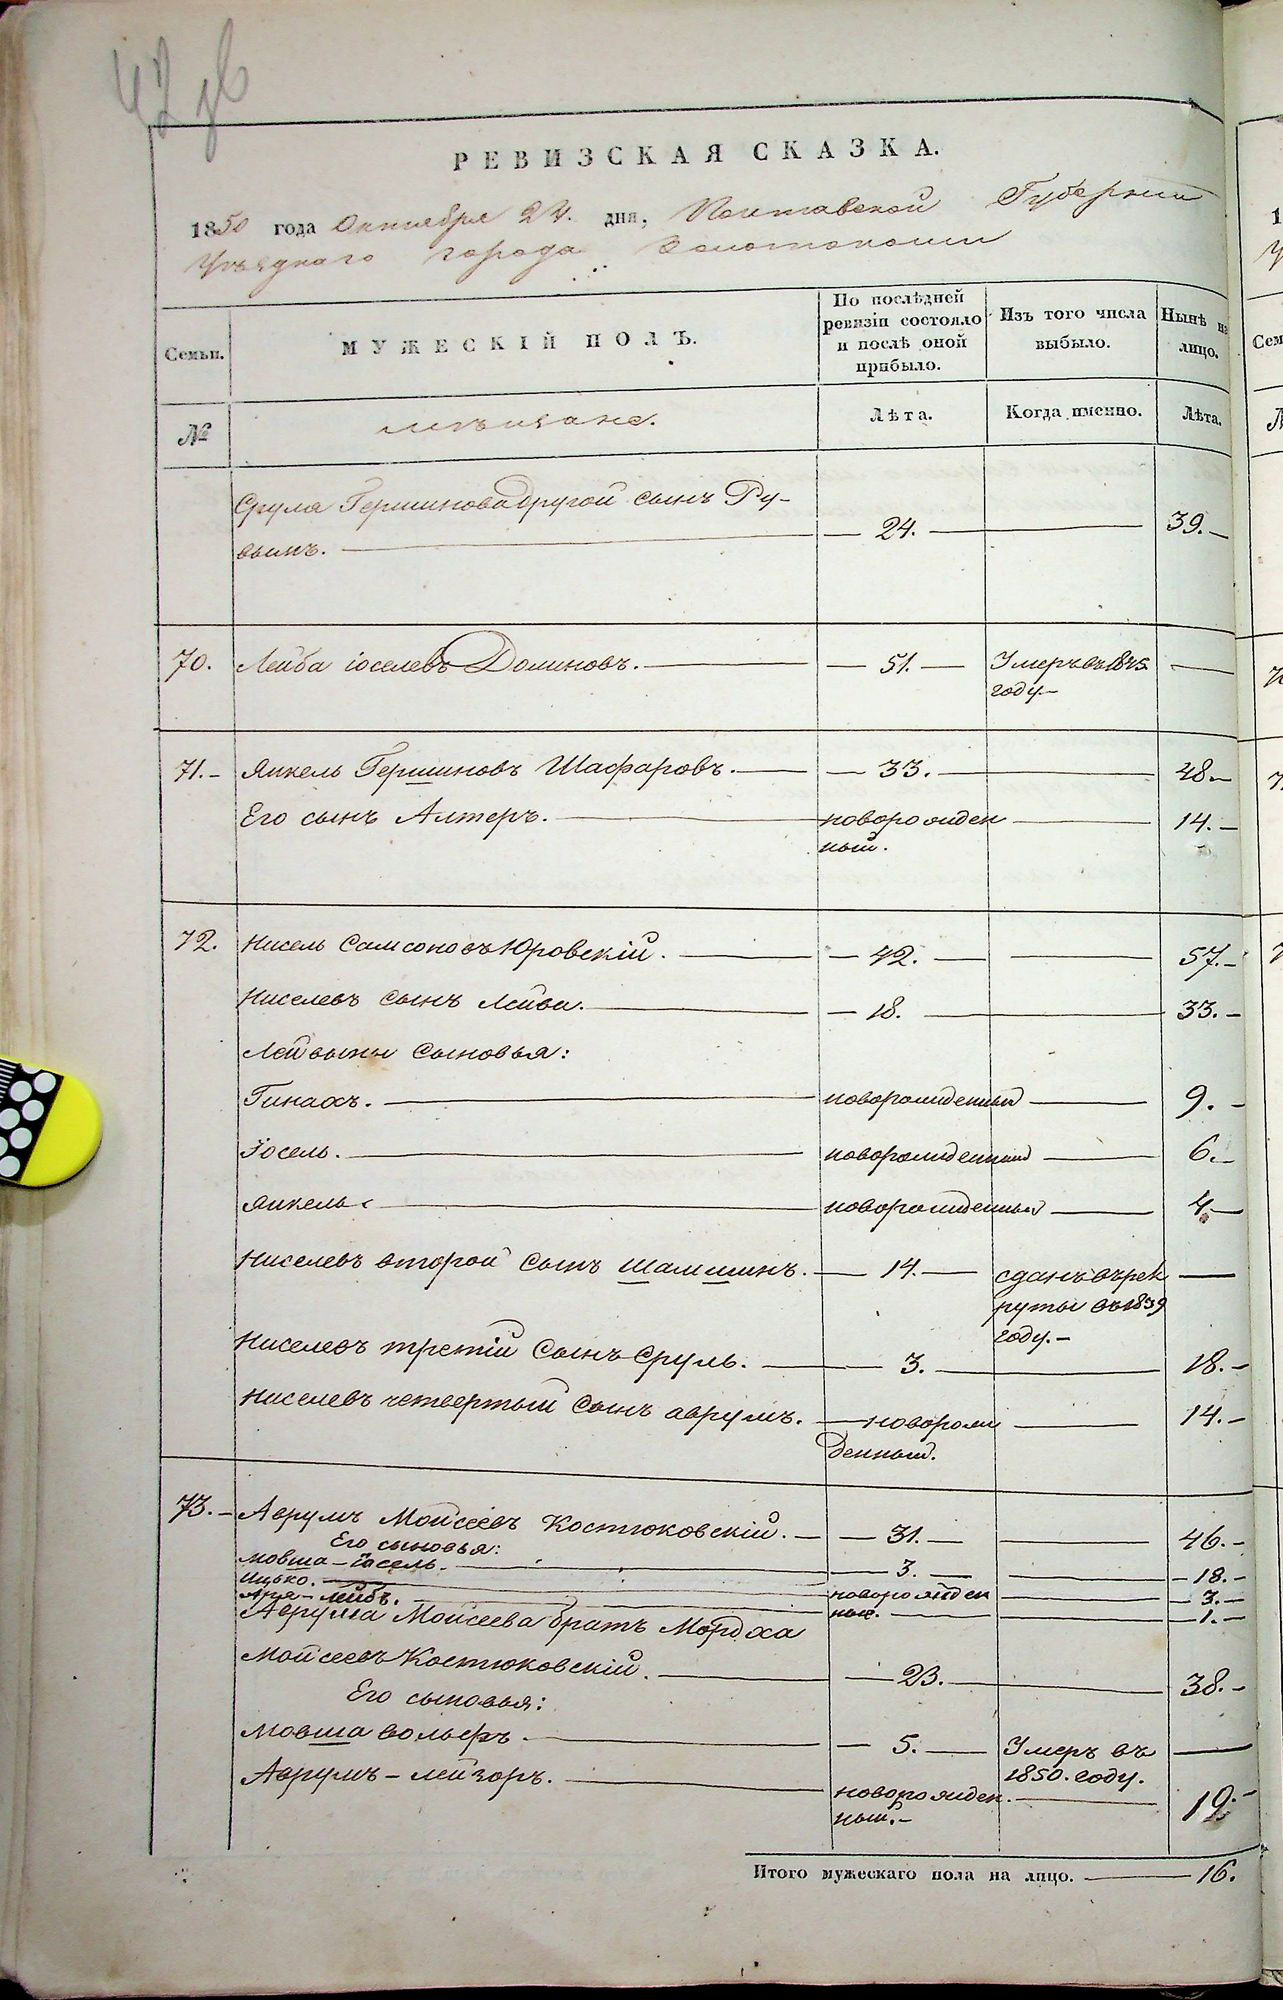 42 зв
РЕВИЗСКАЯ СКАЗКА.
1850 года Октября 24. дня, Полтавской Губернии
Уѣзднаго города Золотоноши
Семьи.
МУЖЕСКІЙ ПОЛЪ.
По послѣдней ревизіи состояло и послѣ оной прибыло.
Изъ того числа выбыло.
Нынѣ на лицо.
№
мѣщане.
Лѣта.
Когда именно.
Лѣта.
Сруля Гершинова другой сынъ Ру-
вимъ. — 24. — 39. —
70. Лейба Іоселевъ Долиновъ. — 51. — Умеръ въ 1845
году. —
71. — Янкель Гершиновъ Шафаровъ. — 33. — 48. —
Его сынъ Алтеръ. — новорожден — 14. —
ный.
72. Нисель Самсоновъ Юровскій. — 42. — 57. —
Ниселевъ сынъ Лейва. — 18. — 33. —
Лейвыны сыновья:
Гинахъ. — новорожденный — 9. —
Іосель. — новорожденный — 6. —
Янкель — новорожденный — 4 —
Ниселевъ второй сынъ Шамшинъ. — 14. — сданъ въ рек
руты въ 1839
году. —
Ниселевъ третій сынъ Сруль. — 3. — 18. —
Ниселевъ четвертый сынъ Аврумъ. — новорож — 14. —
денный.
73. — Аврумъ Мойсеевъ Костюковскій. — 31. — 46. —
Его сыновья:
Мовша-Іосель. — 3. — 18. —
Ицько. — новорожден — 3. —
Лейбъ. — ные. — 1. —
Аврума Мойсеева братъ Мордха
Мойсеевъ Костюковскій. — 23. — 38. —
Его сыновья:
Мовша Вольфъ. — 5. — Умеръ въ —
1850. году.
Аврумъ-Лейзоръ. — новорожден. — 12. —
ный. —
Итого мужескаго пола на лицо. — 16.